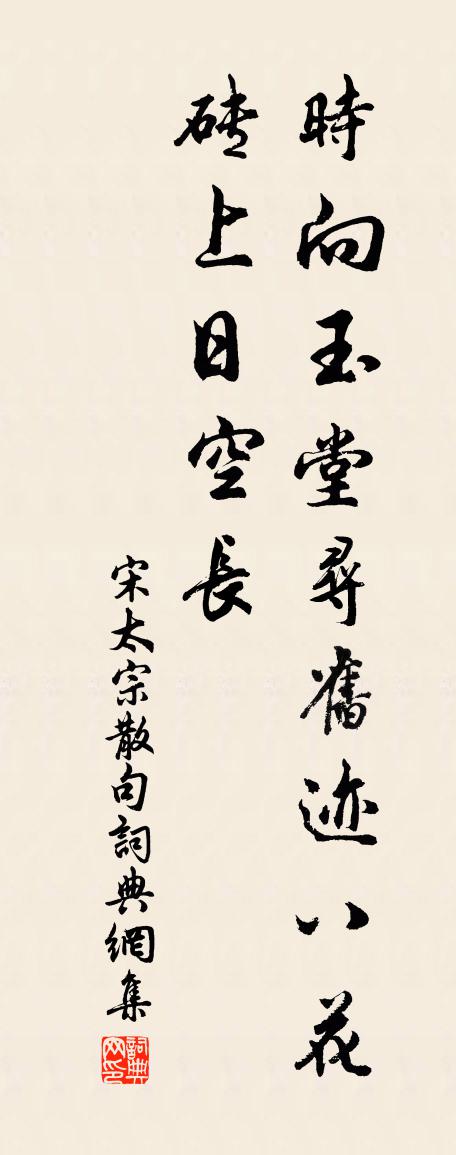 時向玉堂尋舊迹八花
磚上日空長
宋太宗散句詞典網集
詞典网印